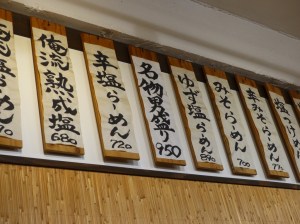 辛みそらーめん
みそらーめん
700
ゆず塩らーめん
名物男盛り
950
辛塩らーめん
720
俺流熟成塩
680
らーめん